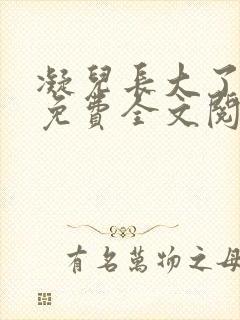 凝兒長大了
免費全文閱
有名萬物之母